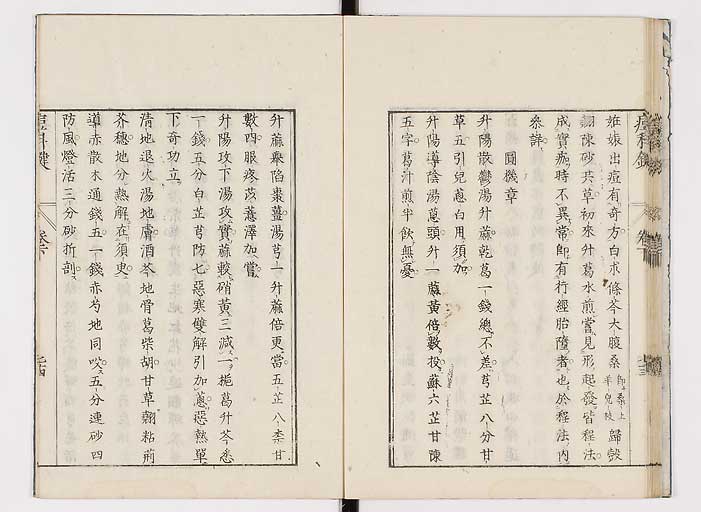 妊娠出痘有奇方白朮條芩大腹桑 即桑上羊兒坆 歸殼
翹陳砂共草初來升葛水煎嘗見形起發皆程法
成實痂時不異常即有行經胎墮者也於程法內
叅詳
圓機章
升陽散鬱湯升蔴乾葛一錢總不差芎芷八分甘
草五引兒蔥白用須加
升陽導陰湯蔥頭升一蔴黃倍數投蘇六芷甘陳
五字葛汁煎半飲無憂
升蔴舉陷棗薑湯芎一升蔴倍更當五芷八柰甘
數四眼疼苡薏澤加嘗
升陽攻下湯攻實蔴轂硝黃三減一梔葛升芩悉
一錢五分白芷芎防七惡寒雙解引加蔥惡熱單
下奇功立
清地退火湯地膚酒芩地骨葛柴胡甘草翹粘荊
芥穗地分熱解在須臾
導赤散木通錢五一錢赤芍地同㕮五分連砂四
防風燈活三分砂折剖
痘科鍵
卷下
二十四